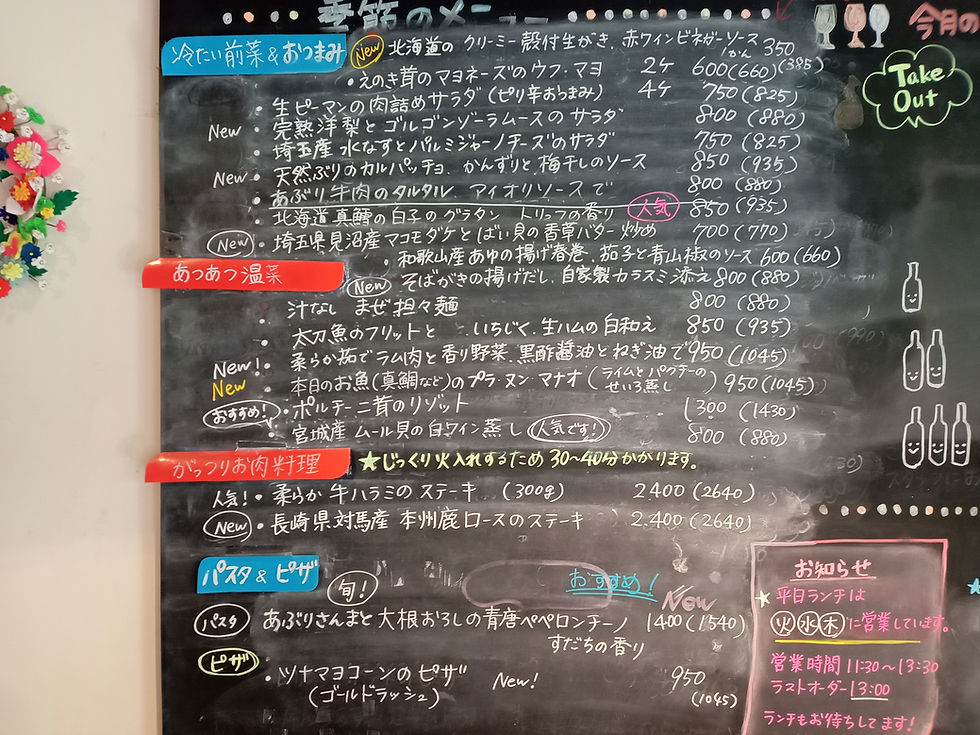 季節のメニュー
冷たい前菜&おつまみ
New 北海道の クリーミー 殻付生がき、赤ワインビネガーソース 350 (385)
・えのき茸のマヨネーズのウフ・マヨ 2ケ 600(660)
・生ピーマンの肉詰めサラダ (ピリ辛おつまみ) 4ケ 750 (825)
New ・完熟洋梨とゴルゴンゾーラムースのサラダ 800 (880)
・埼玉産 水なすとパルミジャーノチーズのサラダ 750 (825)
New ・天然ぶりのカルパッチョ、かんずりと梅干しのソース 850 (935)
・あぶり牛肉のタルタル アイオリソースで 800 (880)
・北海道真鱈の白子のグラタン トリュフの香り 人気 850 (935)
New ・埼玉県見沼産マコモダケとばい貝の香草バター炒め 700 (770)
・和歌山産あゆの揚げ春巻、茄子と青山椒のソース 600 (660)
あつあつ温菜
New そばがきの揚げだし、自家製カラスミ添え 800 (880)
・汁なし まぜ担々麺 800 (880)
・太刀魚のフリットと いちじく、生ハムの白和え 850 (935)
New! ・柔らか茹でラム肉と香り野菜、黒酢醤油とねぎ油で 950 (1045)
New ・本日のお魚(真鯛など)のプラ・ヌン・マナオ (ライムとパクチーのせいろ蒸し) 950 (1045)
おすすめ! ・ポルチーニ茸のリゾット 1300 (1430)
・宮城産 ムール貝の白ワイン蒸し 人気です! 800 (880)
がっつりお肉料理
★じっくり火入れするため 30〜40分かかります。
人気! ・柔らか 牛ハラミのステーキ (300g) 2400 (2640)
New ・長崎県対馬産 本州鹿ロースのステーキ 2.400 (2640)
パスタ & ピザ
旬!
おすすめ!
New
パスタ あぶりさんまと大根おろしの青唐ペペロンチーノ 1400 (1540)
すだちの香り
ピザ ・ツナマヨコーンのピザ New! 950
(ゴールドラッシュ) (1045)
今月の
Take
Out
お知らせ
★平日ランチは
火 水 木 に営業しています。
営業時間 11:30〜13:30
ラストオーダー 13:00
ランチもお待ちしてます!